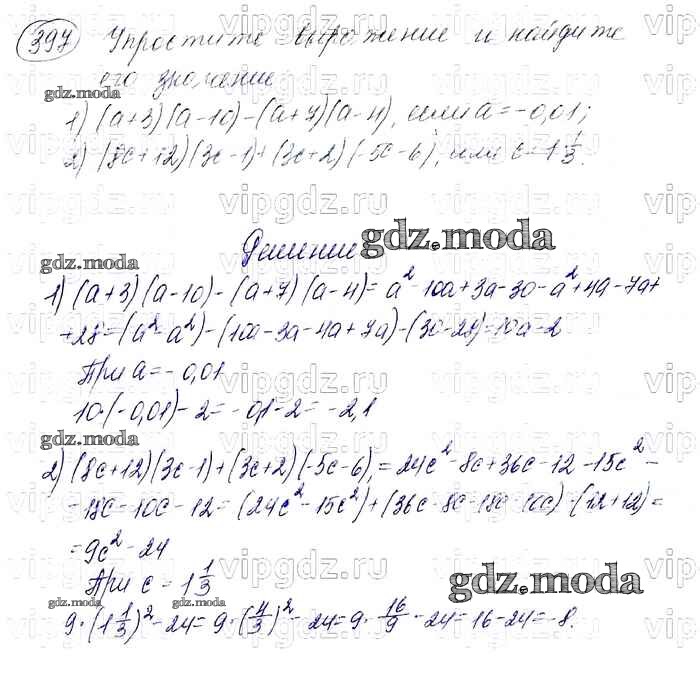 397 Упростите выражение и найдите
его значение
gdz.moda
1) (a+3)(a-10)-(a+7)(a-4), если a=-0,01;
2) (8c+12)(3c-1)+(3c+2)(-5c-6), если c=1 1/3.
Решение gdz.moda
gdz.moda
1) (a+3)(a-10)-(a+7)(a-4)=a²-10a+3a-30-a²+4a-7a+
+28=(a²-a²)-(10a-3a-4a+7a)-(30-28)=10a-2
При a=-0,01
10·(-0,01)-2=-0,1-2=-2,1
gdz.moda
2) (8c+12)(3c-1)+(3c+2)(-5c-6)=24c²-8c+36c-12-15c²-
-18c-10c-12=(24c²-15c²)+(36c-8c-18c-10c)-(12+12)=
=9c²-24
При c=1 1/3
gdz.moda
9·(1 1/3)²-24=9·(4/3)²-24=9·16/9-24=16-24=-8.
vipgdz.ru